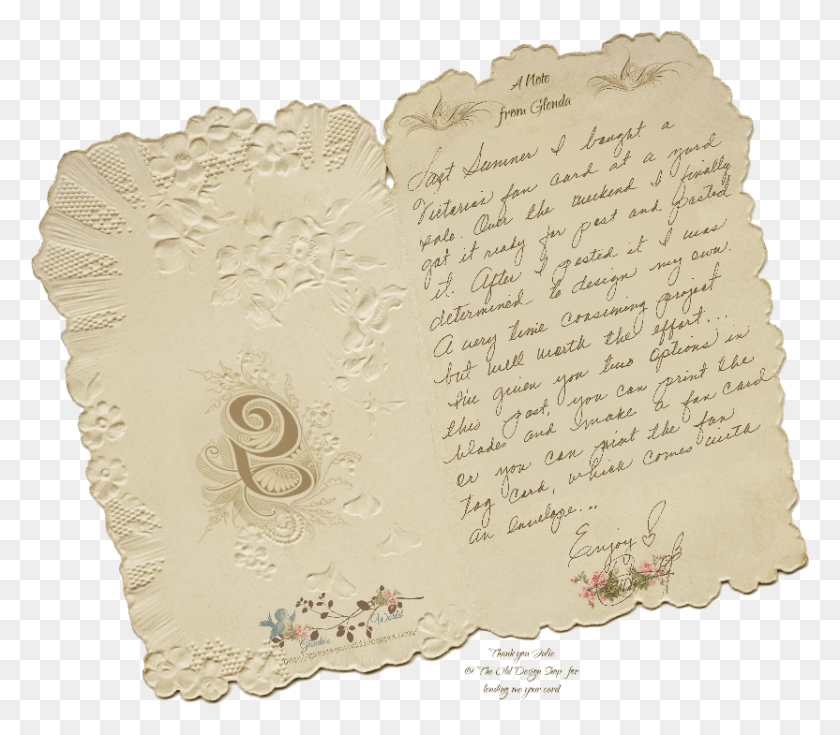 A Note
from Glenda
Last Summer I bought a
Victorian fan card at a yard
sale. Over the weekend I finally
got it ready for post and posted
it. After I posted it I was
determined to design my own.
A very time consuming project
but well worth the effort...
I've given you two options in
this post, you can print the
blades and make a fan card
or you can print the fan
tag card, which comes with
an envelope...
Enjoy!
Glenda's World
Thank you Julie
@ The Old Design Shop for
lending me your card